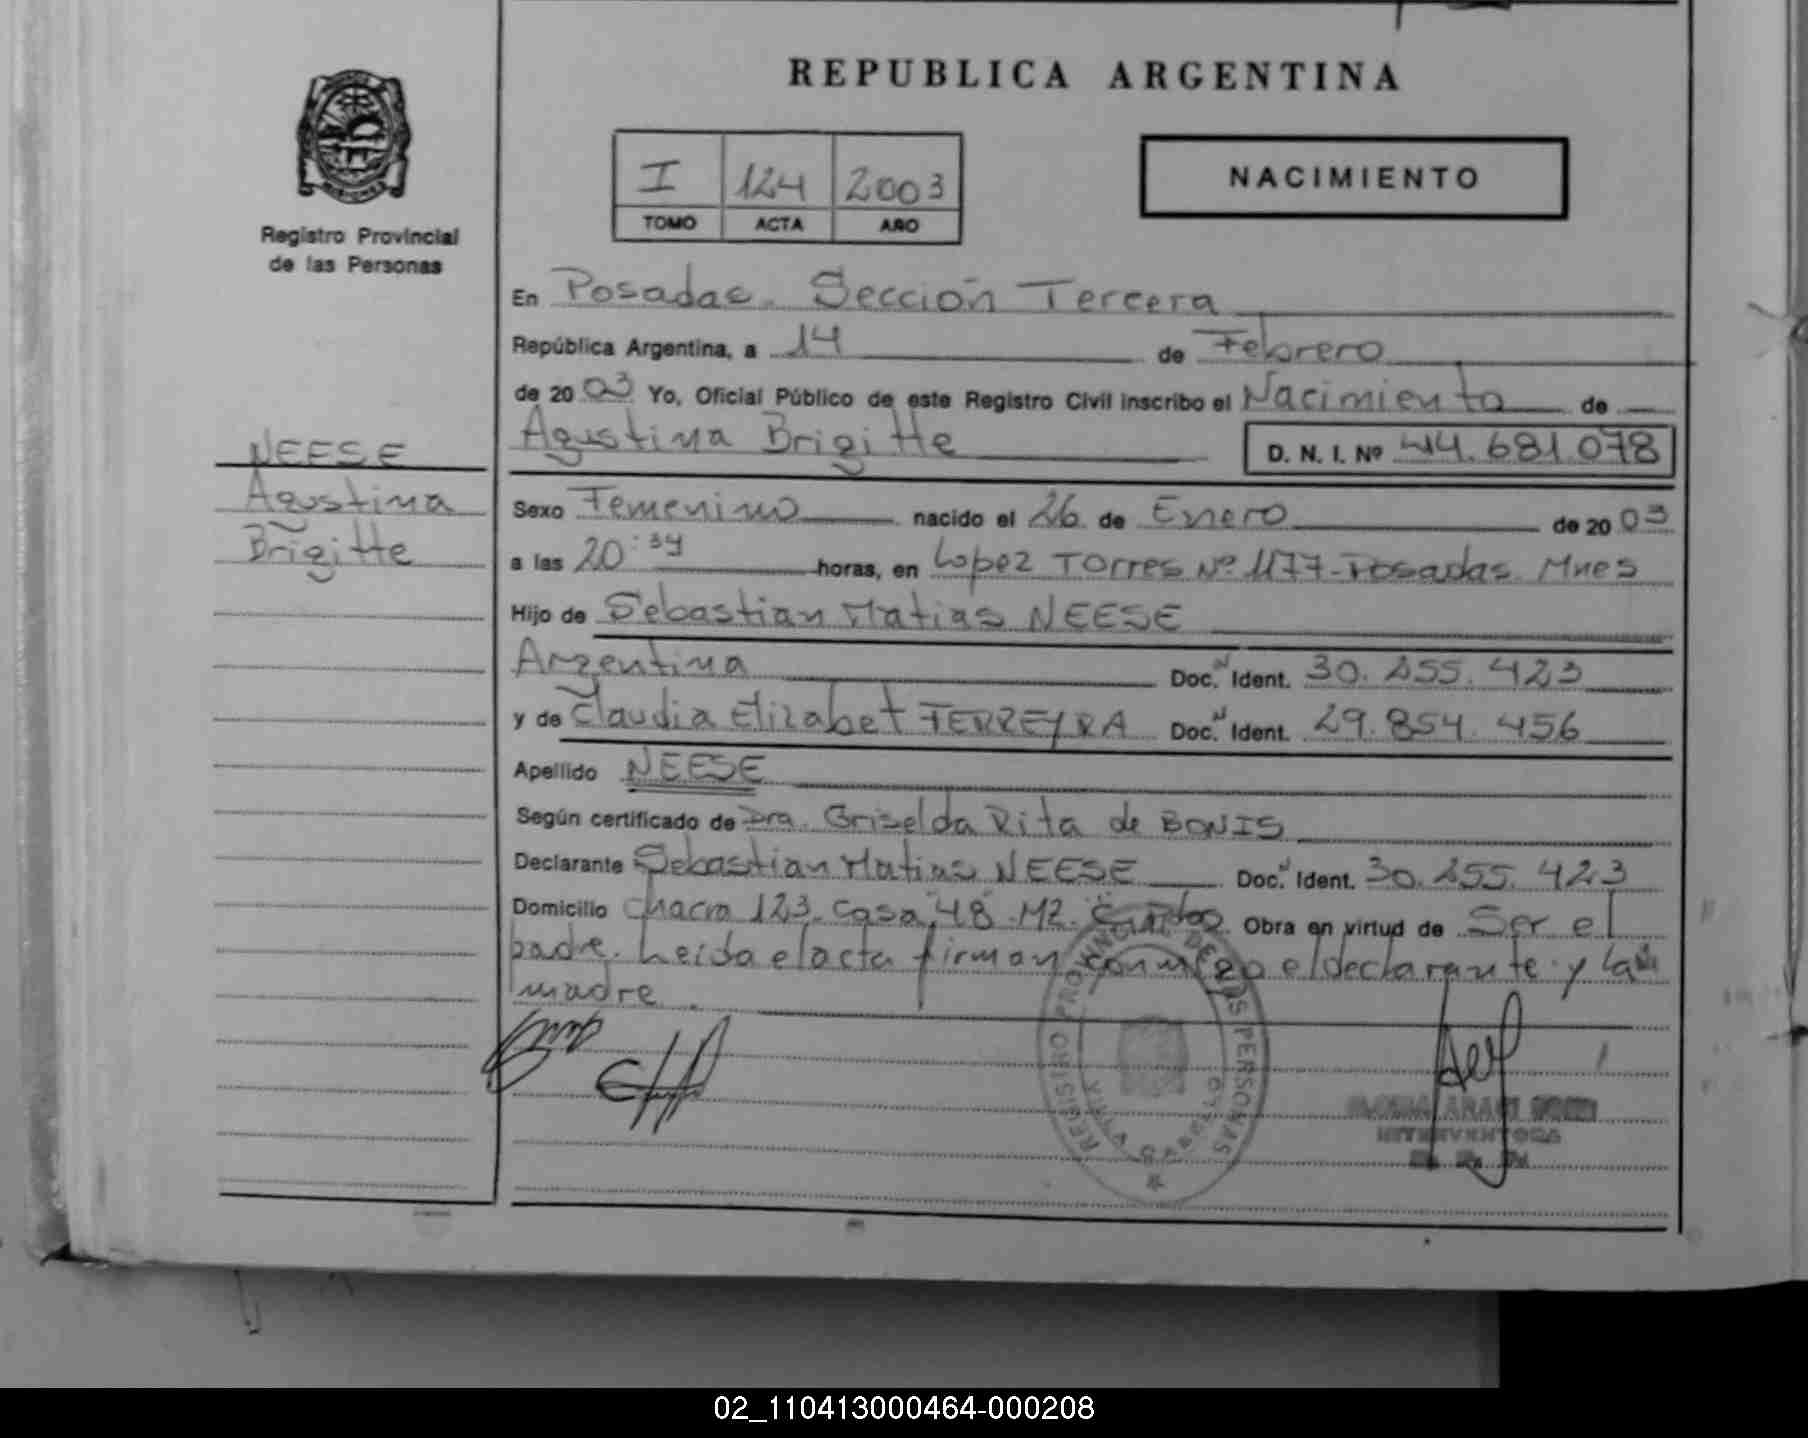 REPUBLICA ARGENTINA
I 124 2003
TOMO ACTA AÑO
NACIMIENTO
Registro Provincial
de las Personas
NEESE
Agustina
Brigitte
En Posadas. Sección Tercera
República Argentina, a 14 de Febrero
de 2003 Yo, Oficial Público de este Registro Civil inscribo el Nacimiento de
Agustina Brigitte D. N. I. Nº 44.681.078
Sexo Femenino nacido el 26 de Enero de 2003
a las 20:34 horas, en Lopez Torres Nº 1177-Posadas. Mnes
Hijo de Sebastian Matias NEESE
Argentina Doc. Ident. 30.255.423
y de Claudia Elizabet FERREYRA Doc. Ident. 29.854.456
Apellido NEESE
Según certificado de Dra. Griselda Rita de BONIS
Declarante Sebastian Matias NEESE Doc. Ident. 30.255.423
Domicilio Chacra 123. Casa "48" MZ. Obra en virtud de Ser el
padre. Leida el acta firman conmigo el declarante y la
madre.
REGISTRO PROVINCIAL DE LAS PERSONAS
POSADAS
ARACI
INTERVENTORA
02_110413000464-000208